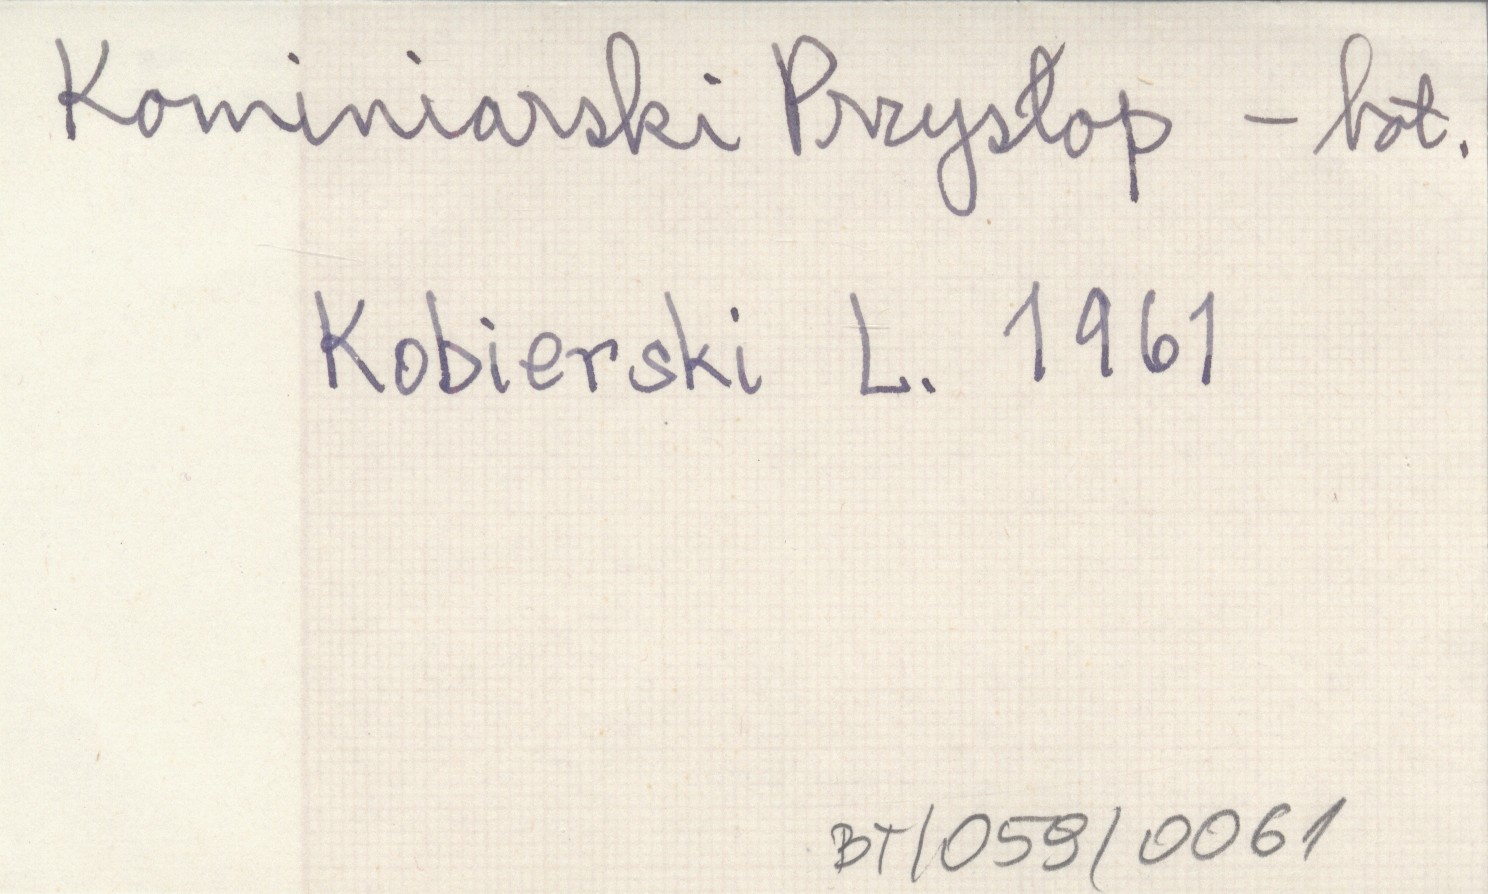 Kominiarski Przysłop - bot.
Kobierski L. 1961
BT/059/0061